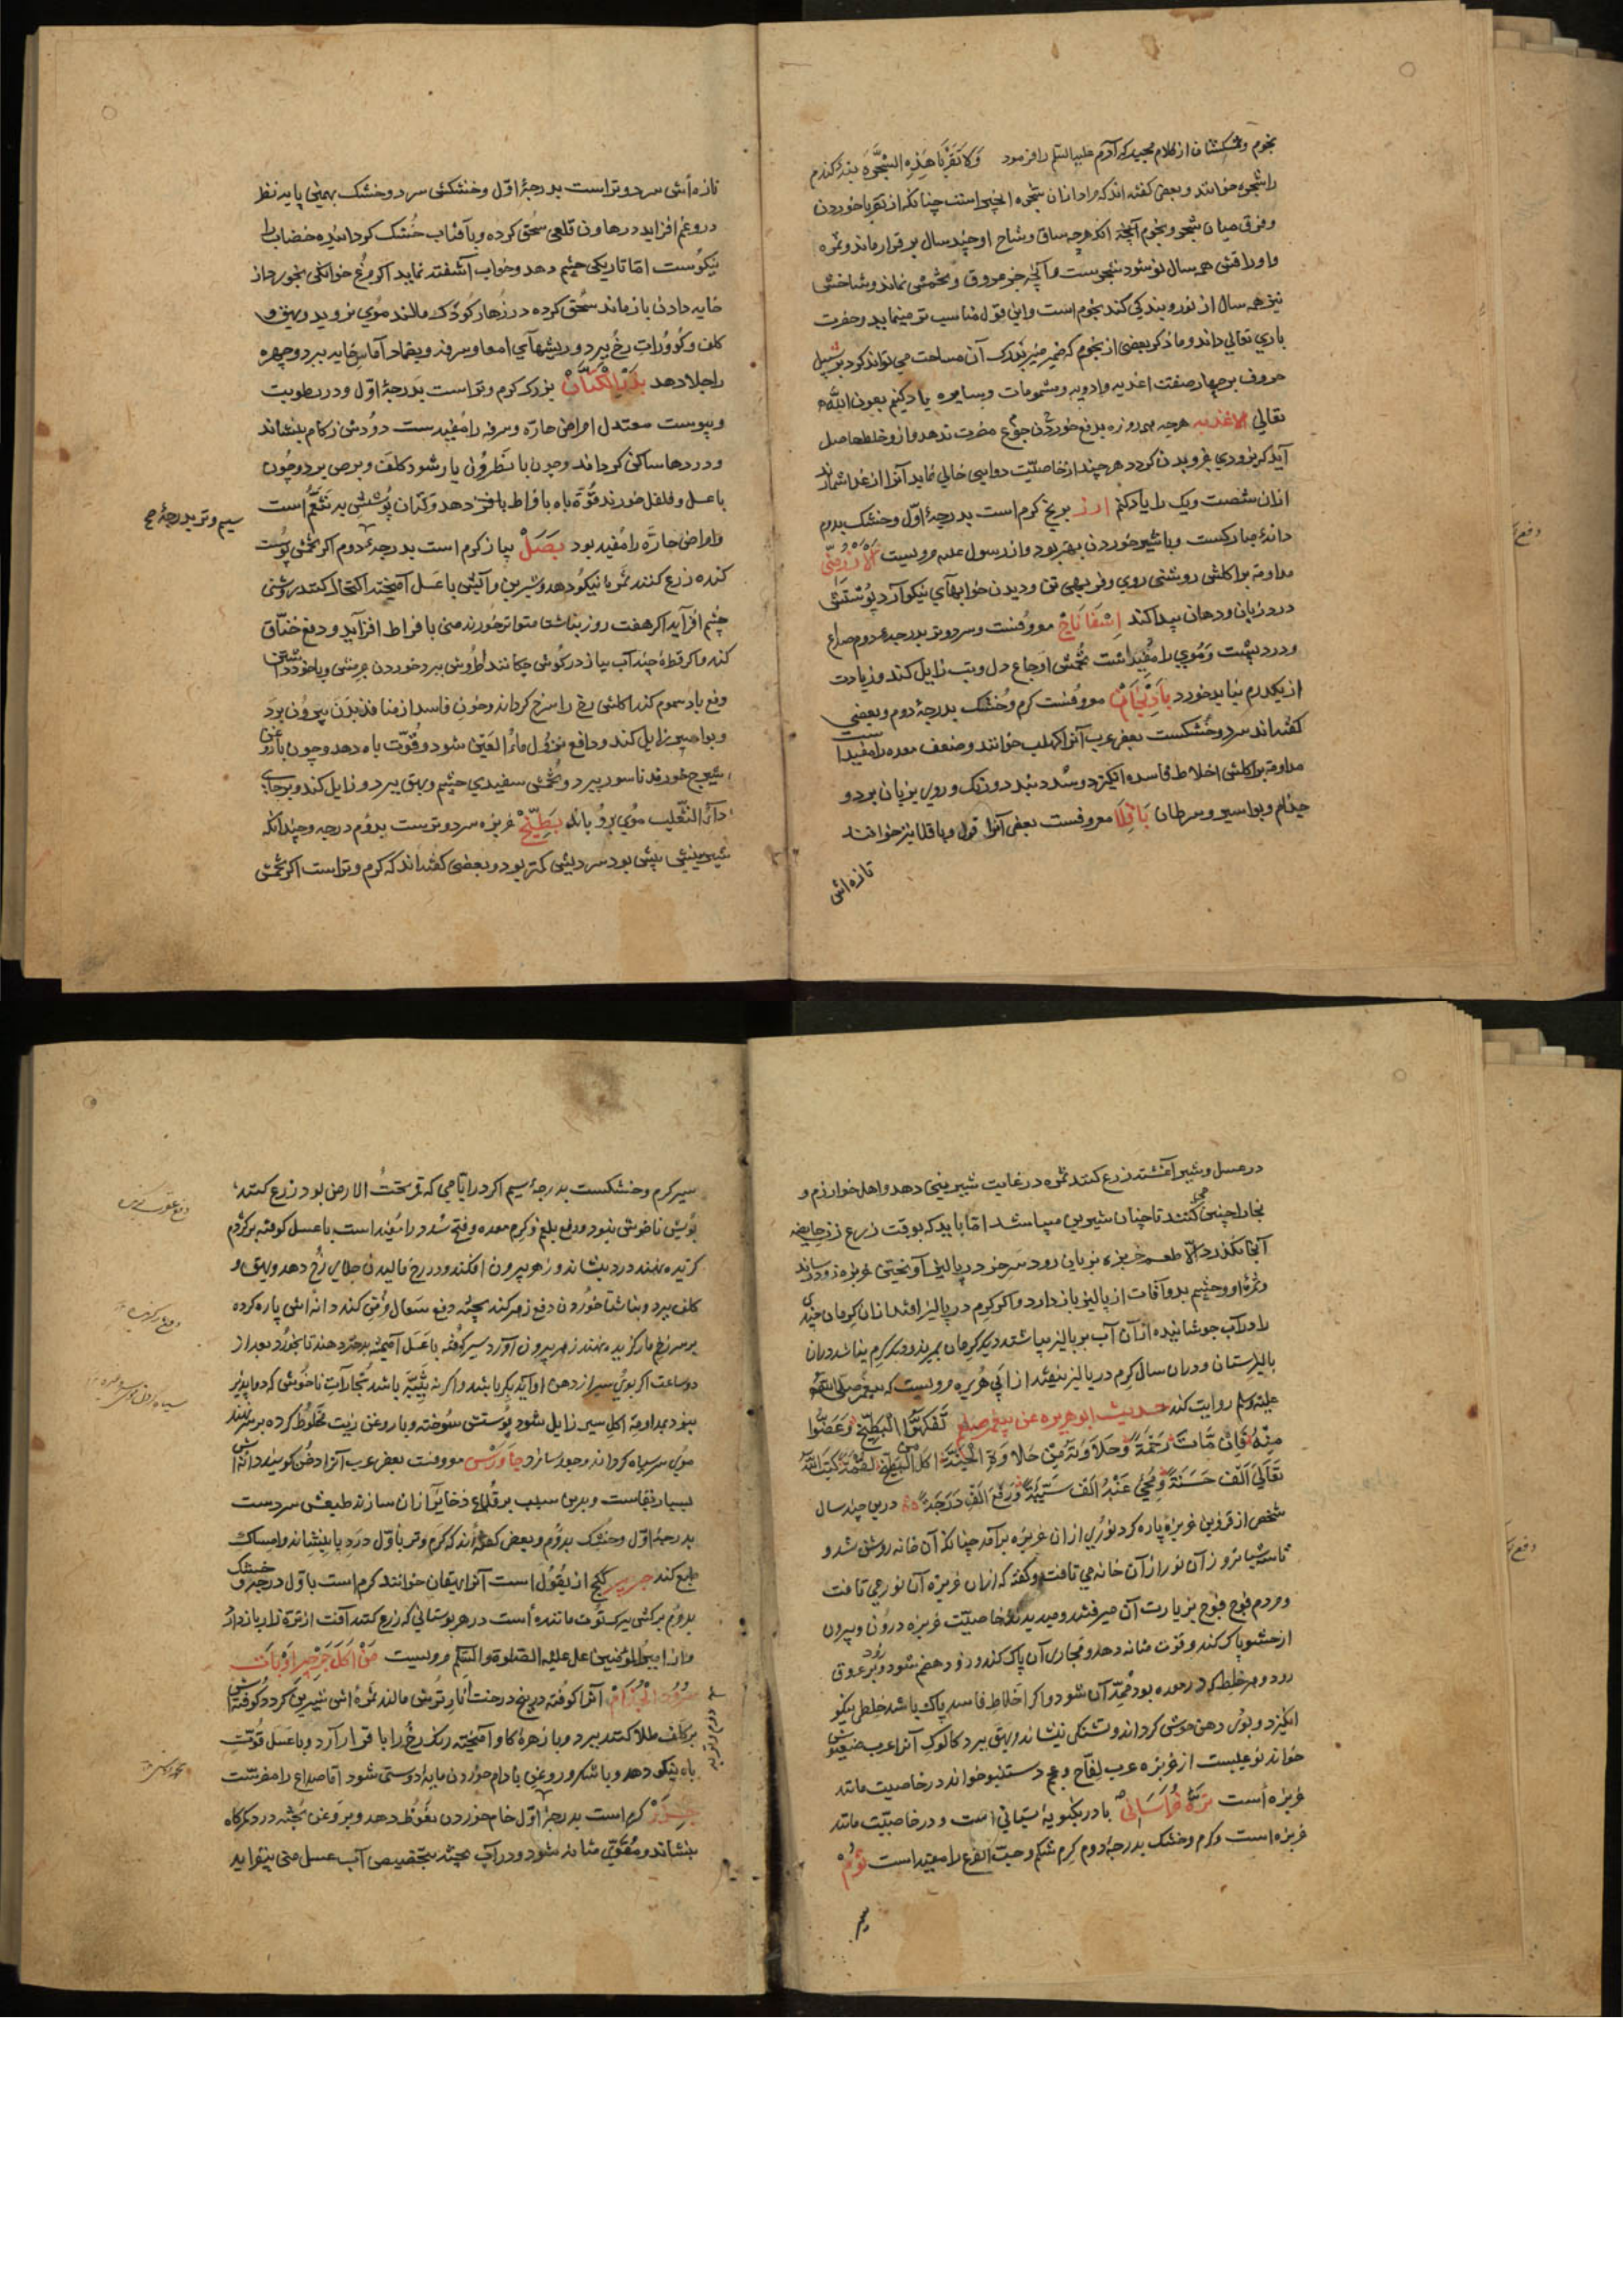 نجوم وشکستان از کلام مجید که آدم علیه السلم را فرمود وَلَا تَقْرَبَا هَذِهِ الشَّجَرَةَ بنهٔ کندم
را شجره خوانند و بعضی کفته اند که مراد ازان شجره انجیر است چنانکه از تقربا خوردن
وفرق میان شجر ونجوم آنکه هرچه ساق وشاخ او چند سال بر قرار ماند وثمره
واوراقش هر سال نو شود شجرست وآنچه جز عروق وتخمش نماند وشاخش
نیز همه سال از نو روبندکی کند نجوم است واین قول مناسب تر مینماید وحضرت
باری تعالی داند وما ذکر بعضی از نجوم که ضمیر منیر آن مساحت می تواند کرد بر سبیل
حروف بر چهار صفت اغذیه وادویه ومشمومات وسایره یاد کنیم بعون الله
تعالی الاغذیه هرچه هر روزه بدفع خوردن جوع مضرت ندهد وازو خلط حاصل
آید که بزودی جزو بدن کردد هر چند از خاصیّت دوایی خالی نماید آنرا از غذا شمارند
ازان شصت ویک را یاد کنم ارز برنج کرم است بدرجهٔ اول وخشک بدوم
دانهٔ مبارکست وبا شیر خوردن بهتر بود واز رسول علیه مرویست الارز منی
مداومت براکلش روشنی روی وفربهی تن ودیدن خوابهای نیکو آرد پوستش
درد زبان ودهان پیدا کند اِسْفَانَاخْ معروفست وسرد وتر بدرجهٔ دوم صداع
ودرد پشت وموی را مفیدست تخمش اوجاع دل وتب زایل کند وزیادت
از یکدرم نباید خورد بادنجان معروفست کرم وخشک بدرجهٔ دوم وبعضی
کفته اند سرد وخشکست بعض عرب آنرا کهلب خوانند وضعف معده را مفید است
مداومت براکلش اخلاط فاسده انکیزد وسدد بندد ورنک وروی بزیان برد و
جذام وبواسیر وسرطان باقلا معروفست بعضی آنرا فول وباقلا نیز خوانند
تازه اش
تازه اش سرد وتر است بدرجهٔ اول وخشکش سرد وخشک بهمین پایه نظر
دروغم افزاید در هاون قلعی سحق کرده وبآفتاب خشک کردانیده خضاب را
نیکوست امّا تاریکی چشم دهد وخواب آشفته نماید اکر مرغ خوانکی بخورد از
خایه دادن باز ماند سحق کرده در زهار کودک مالند موی نروید وبهق و
کلف وکدورات رخ ببرد وریشهای امعا وسرفه وبضماد آماس خایه ببرد وچهره
را جلا دهد بذر الکتان بزرک کرم وتر است بدرجهٔ اول ودر رطوبت
ویبوست معتدل امراض حارّه وسرفه را مفیدست دودش زکام بنشاند
ودردها ساکن کرداند وچون با نطرون یار شود کلف وبرص ببرد وچون
با عسل وفلفل خورند قوّة باه بافراط دهد وکتان پوشش بر تنعّم است
سیم وتر بدرجهٔ صح
وامراض حارّه را مفید بود بصل پیاز کرم است بدرجهٔ دوم اکر تخمش پوست
کنده زرع کنند ثمره نیکو دهد وشیرین وآتش با عسل آمیخته اکتحال کنند روشنی
چشم افزاید اکر هفت روز بناشتا متواتر خورند منی بافراط افزاید ودفع خناق
کند واکر قطرهٔ چند آب پیاز در کوش چکانند طروش ببرد خوردن
دفع باد سموم کند اکلش رخ را سرخ کرداند وخون فاسد از منافذ بدن بیرون برد
وبواسیر زایل کند ودافع نزول ماء العین شود وقوّت باه دهد وچون با روغن
شیرج خورند ناسور ببرد وتخمش سفیدی چشم وبهق ببرد وزایل کند وبر جای
داء الثعلب موی برویاند بِطِّیخ خربزه سرد وترست بدوم درجه وچندانکه
شیرینیش بیش بود سردیش کمتر بود وبعضی کفته اند که کرم وتر است اکر تخمش
در عسل وشیر آغشته زرع کنند ثمره در غایت شیرینی دهد واهل خوارزم و
بخارا چنین می کنند تا چنان شیرین میباشد امّا باید که بوقت زرع زن حایضه
آنجا نکذرد والا طعم خربزه بزیان رود سر خر در پالیز آویختن خربزه زود رساند
وثمره او وچشم بد وآفات از پالیز باز دارد واکر کرم در پالیز افتد ازان کرمان چند
را در آب جوشانیده از آن آب بر پالیز بپاشند دیکر کرمان بمیرند ودیکر کرم نباشد دران
پالیزستان ودران سال کرم در پالیز نیفتد از ابی هریره مرویست که پیغمبر صلی الله
علیه وسلم روایت کند حدیث ابو هریره عن پیغمبر صلعم تَفَکَّهُوا الْبَطِّیخَ وَعَضُّوا
مِنْهُ فَاِنَّ مَاءَهُ رَحْمَةٌ وَحَلَاوَتَهُ مِنْ حَلَاوَةِ الْجَنَّةِ مَن اَکَلَ الْبَطِّیخَ لُقْمَةً کَتَبَ اللّٰهُ
تَعَالَی اَلْفَ حَسَنَةٍ وَمُحِیَ عَنْهُ اَلْفَ سَیِّئَةٍ وَرَفَعَ اَلْفَ دَرَجَةٍ درین چند سال
شخصی از قزوین خربزه پاره کرد نوری ازان خربزه برآمد چنانکه آن خانه روشن شد و
تا سه شبانروز آن نور از آن خانه می تافت وکفته که ازان خربزه آن نور می تافت
ومردم فوج فوج بزیارت آن میرفتند ومیدیدند خاصیّت خربزه درون وبیرون
از حشو پاک کند وقوت مثانه دهد ومجاری آن پاک کند وزود هضم شود وزود بر عروق
رود وهر خلط که در معده بود ممدّ آن شود واکر اخلاط فاسد پاک باشد خلطی نیکو
انکیزد وبوی دهن خوش کرداند وتشنکی نشاند وبهق ببرد کالوک آنرا عرب ضغبوش
خواند نوعیست از خربزه عرب لفّاح وعجم دستنبو خواند در خاصیت مانند
خربزه است تره خراسانی بادرنکبویه بستانی است ودر خاصیّت مانند
خربزه است وکرم وخشک بدرجهٔ دوم کرم شکم وحبّ القرع را مفید است ثوم
سیر
سیر کرم وخشکست بدرجهٔ سیم اکر در ایّامی که قمر تحت الارض بود زرع کنند
بویش ناخوش نبود ودفع بلغم وکرم معده وفتح سدد را مفید است با عسل کوفته بر کژدم
کزیده نهند درد بنشاند وزهر بیرون افکند ودر رخ مالیدن جلای رخ دهد وبهق و
کلف ببرد وبناشتا خوردن دفع زهر کند پخته دفع سعال مزمن کند دانه اش پاره کرده
بر سر زخم مار کزیده نهند زهر بیرون آورد سیر کوفته با عسل آمیخته دهند تا بخورد بعد از
دو ساعت اکر بوی سیر از دهن او آید بکر باشد واکر نه ثیّب باشد بخارات ناخوش که دوا پذیر
نبود بمداومت اکل سیر زایل شود پوستش سوخته وبا روغن زیت مخلوط کرده بر سر نهند
موی سر سیاه کرداند وجعد سازد جاورس معروفست بعض عرب آنرا دخن کویند دانه اش
بسیار بقاست وبدین سبب بر قلاع ذخایر ازان سازند طبعش سردست
بدرجهٔ اول وخشک بدوم وبعضی کفته اند که کرم وتر باول درد پا بنشاند وامساک
طبع کند جرجیر ککج از بقول است آنرا ایهقان خوانند کرم است باول درجه وخشک
بدوم برکش ببرک توت ماننده است در هر بوستانی که زرع کنند آفت از ترّه زار باز دارد
واز امیر المؤمنین علی علیه الصلوة والسلم مرویست مَنْ اَکَلَ جَرْجِیرًا وَبَاتَ
الْجُذَامُ آنرا کوفته در بیخ درخت انار ترش مالند ثمره اش شیرین کردد کوفته اش
بر کلف طلا کنند ببرد وبا زهرهٔ کاو آمیخته رنک رخ را با قرار آرد وبا عسل قوّت
باه نیکو دهد وبا شکر وروغن بادام خوردن مایهٔ دوستی شود امّا صداع را مضرتست
جزر کزر است بدرجهٔ اول خام خوردن نفوظ دهد وبروغن پخته درد کمرکاه
بنشاند ومقوّی مثانه شود ودر آب پخته بتخصیص آب عسل منی بیفزاید